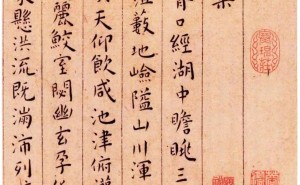 口經湖中瞻眺三
藪地嶮隘山川渾
天仰飲咸池津俯
麗鮫室閟幽玄孕
懸洪流既滿沛列